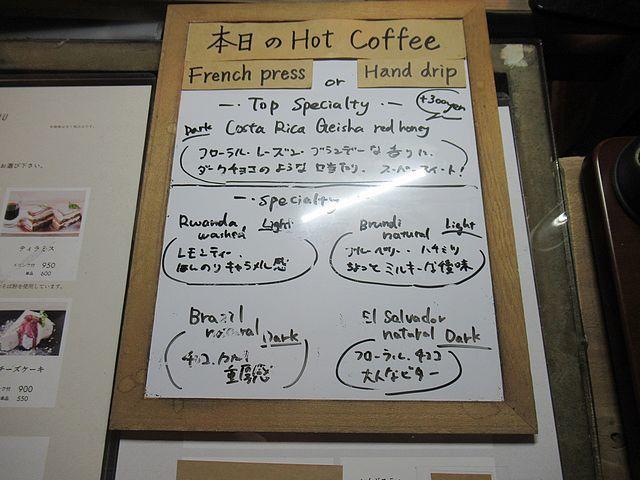 本日のHot Coffee
French press or Hand drip
Top Specialty
+300yen
Dark Costa Rica Geisha red honey
フローラル・レーズン・ブランデーな香りに
ダークチョコのような口当たり スーパースイート!
specialty
Rwanda washed Light
レモンティー、
ほんのりキャラメル感
Brundi natural Light
ブルーベリー・ハチミツ
ちょっとミルキーな後味
Brazil natural Dark
チョコ
重厚感
El Salvador natural Dark
フローラル、チョコ
大人なビター
お選び下さい。
ティラミス
950
単品 600
を使用しています。
チーズケーキ
900
単品 550